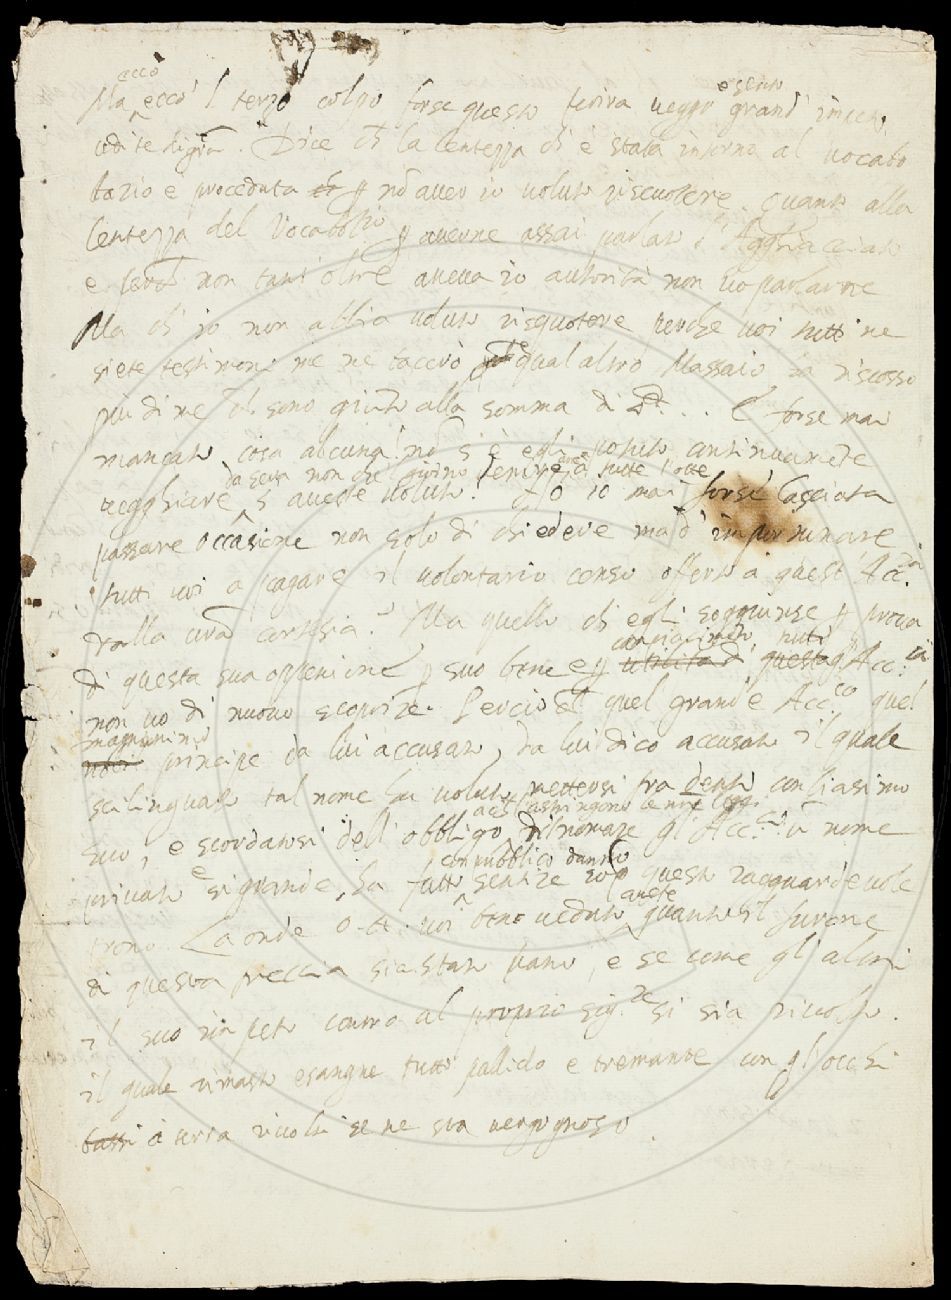 ecco
Ma ecco 'l terzo colpo forse questo ferirà veggo grand'
e sento
udite di gra. Dice ch la lentezza ch è stata intorno al vocabo
lario è proceduta p no aver io voluto riscuotere. Quanto alla
lentezza del Vocabolrio p averne assai parlato l'Agghiacciato
e non tant'oltre aveva io autorità non vo parlarne
Ma ch io non abbia voluto risquotere perche voi tutti ne
siete testimoni me ne tacerò qual altro Massaio ha riscosso
più di me ch sono giunto alla somma di ... E forse mai
mancato cosa alcuna? no s'è egli potuto continuamente
da sera non che giorno tutte l'otte
vegghiare s'aveste voluto? Ho io mai forse lasciata
passare occasione non solo di chiedere ma d'importunare
tutti voi a pagare il volontario censo offerto a quest'Acc.
dalla vra cortesia? Ma quello ch egli soggiunse p prova
di questa sua oppenione p suo bene e p utilità di questa Acc.ia
non vo di nuovo scoprire. Perciò ch quel grande Acc.co quel
magnanimo
principe da lui accusato, da lui dico accusato il quale
scilinguato tal nome ha voluto mettersi fra denti
suo, e scordatosi dell'obbligo, di nomare gl'Acc.ci a nome
con pubblico danno
privato e si grande, ha fatto sentire questo ragguardevole
avete
trono. La onde o A. voi bene veduto quanto il furore
di questa freccia sia stato vano, e se come gl'altri
il suo impeto contro al proprio sig.re si sia rivolto.
il quale rimasto esangue tutto pallido e tremante con gl'occhi
bassi a terra rivolti se ne sta vergognoso.